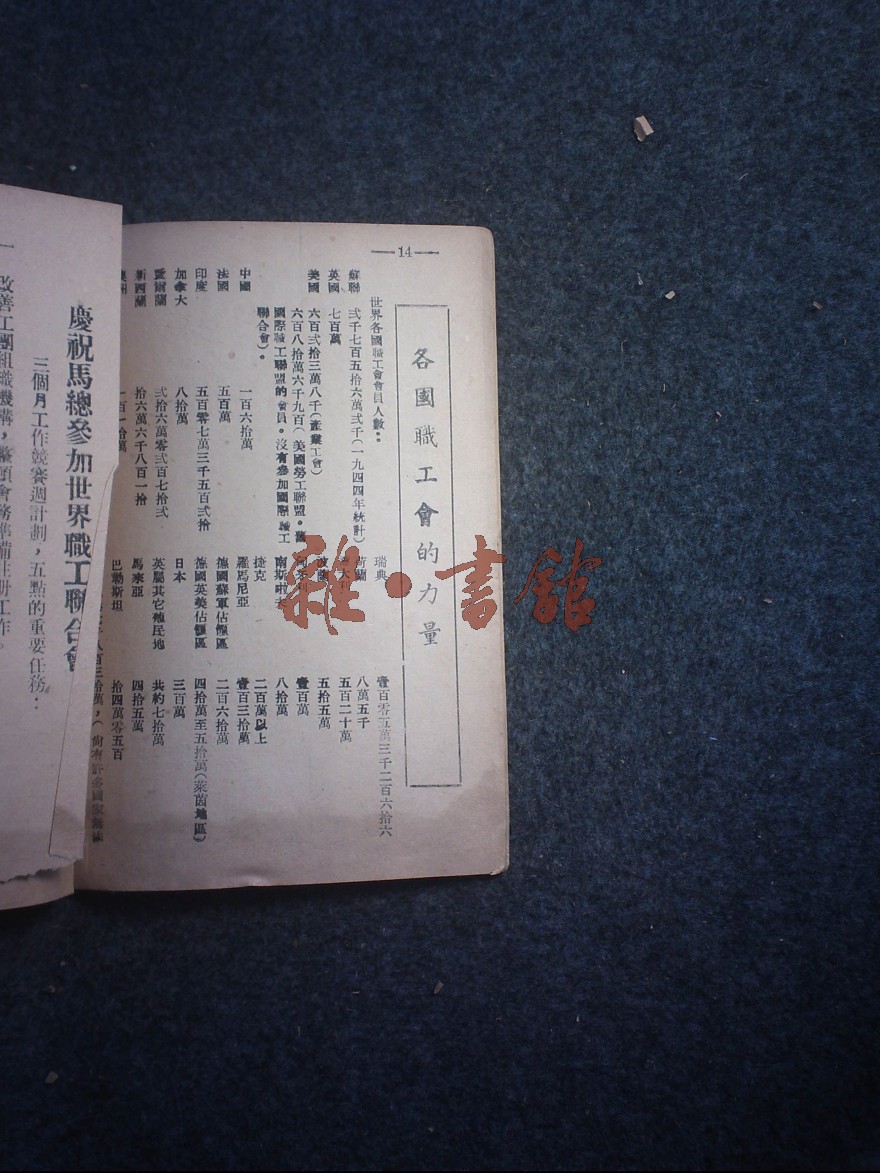 —14—
各國職工會的力量
世界各國職工會會員人數：
蘇聯 弍千七百五拾六萬弍千（一九四四年統計）
英國 七百萬
美國 六百弍拾三萬八千（產業工會）
六百八拾萬六千九百（美國勞工聯盟。舊
國際職工聯盟的會員。沒有參加國際職工
聯合會）。
中國 一百六拾萬
法國 五百萬
印度 五百零七萬三千五百弍拾
加拿大 八拾萬
愛爾蘭 弍拾六萬零弍百七拾弍
新西蘭 拾六萬六千八百一拾
一百一拾萬
瑞典 壹百零五萬三千二百六拾六
荷蘭 八萬五千
五百二十萬
五拾五萬
壹百萬
南斯 八拾萬
捷克 二百萬以上
羅馬尼亞 壹百三拾萬
德國蘇軍佔領區 二百六拾萬
德國英美佔領區 四拾萬至五拾萬（萊茵地區）
日本 三百萬
英屬其它殖民地 共約七拾萬
馬來亞 四拾五萬
巴勒斯坦 拾四萬零五百
八百三拾萬，（尚有許多
慶祝馬總參加世界職工聯合會
三個月工作競賽週計劃，五點的重要任務：
一 改善工團組織機構，整頓會務準備註册工作。
雜·書館